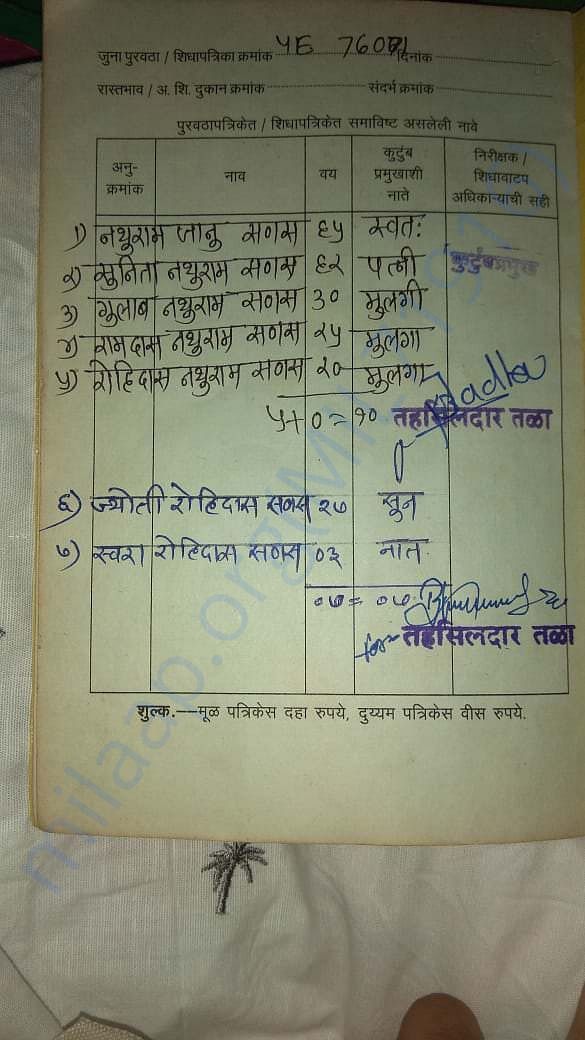 जुना पुरवठा / शिधापत्रिका क्रमांक YE 760 दिनांक
रास्तभाव / अ. शि. दुकान क्रमांक संदर्भ क्रमांक
पुरवठापत्रिकेत / शिधापत्रिकेत समाविष्ट असलेली नावे
अनु-क्रमांक नाव वय कुटुंब प्रमुखाशी नाते निरीक्षक / शिधावाटप अधिकाऱ्याची सही
१) नथुराम जानु सणस ६५ स्वतः
२) सुनिता नथुराम सणस ६२ पत्नी कुटुंबप्रमुख
३) गुलाब नथुराम सणस ३० मुलगी
४) रामदास नथुराम सणस २५ मुलगा
५) रोहिदास नथुराम सणस २० मुलगा
५+०=१० तहसिलदार तळा
६) ज्योती रोहिदास सणस २७ सून
७) स्वरा रोहिदास सणस ०३ नात
०७=०७
for तहसिलदार तळा
शुल्क.—मूळ पत्रिकेस दहा रुपये, दुय्यम पत्रिकेस वीस रुपये.
milaap.org